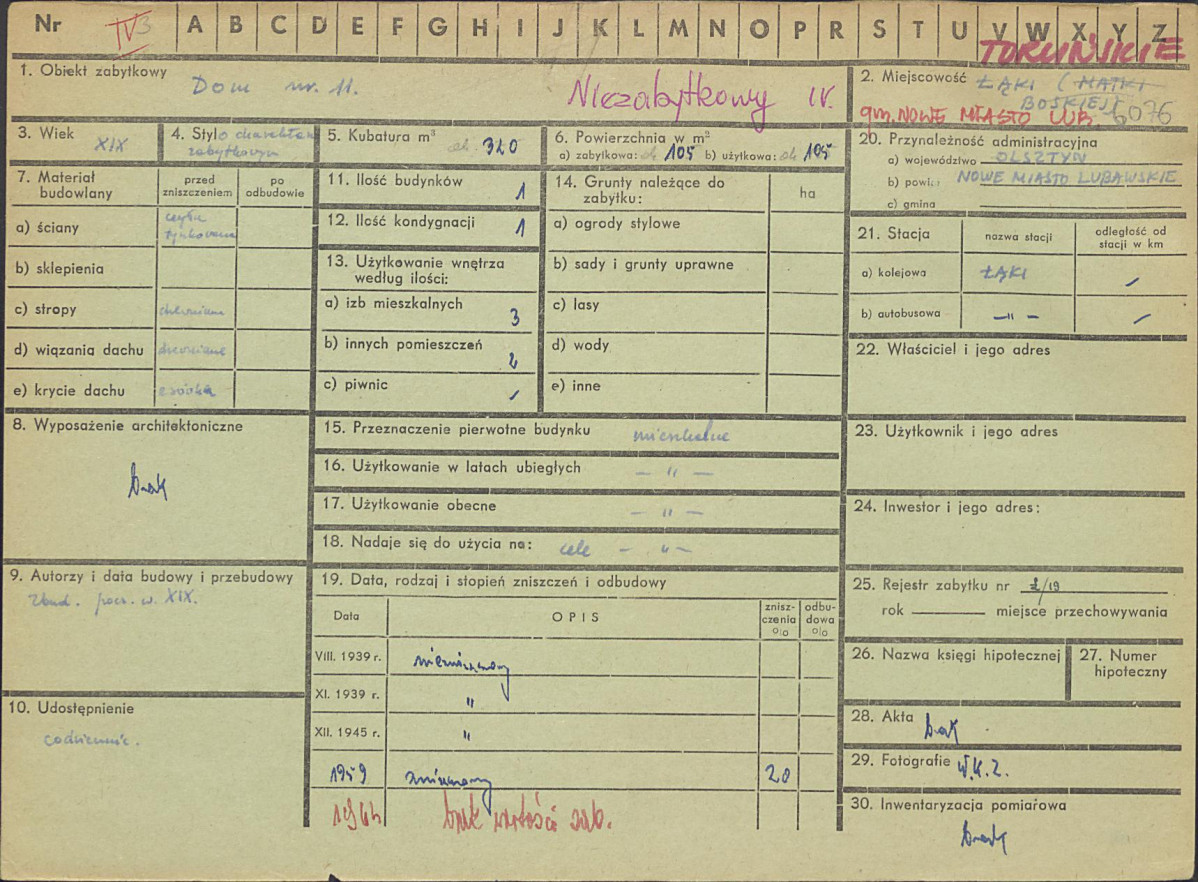 Nr IV 3 A B C D E F G H I J K L M N O P R S T U V W X Y Z
TORUŃSKIE
1. Obiekt zabytkowy
Dom nr. 11.
Niezabytkowy IV.
2. Miejscowość ŁĄKI (MATKI
BOSKIEJ)
gm. NOWE MIASTO LUB. 6076
3. Wiek
XIX
4. Styl o charakterze
zabytkowym
5. Kubatura m³ ok. 320
6. Powierzchnia w m²
a) zabytkowa: ok 105 b) użytkowa: ok 105
7. Materiał
budowlany
przed
zniszczeniem
po
odbudowie
a) ściany
cegła
tynkowana
b) sklepienia
c) stropy drewniane
d) wiązania dachu drewniane
e) krycie dachu
8. Wyposażenie architektoniczne
brak
9. Autorzy i data budowy i przebudowy
Zbud. pocz. w. XIX.
10. Udostępnienie
codziennie.
11. Ilość budynków 1
12. Ilość kondygnacji 1
13. Użytkowanie wnętrza
według ilości:
a) izb mieszkalnych 3
b) innych pomieszczeń 2
c) piwnic /
14. Grunty należące do
zabytku:
ha
a) ogrody stylowe
b) sady i grunty uprawne
c) lasy
d) wody
e) inne
15. Przeznaczenie pierwotne budynku mieszkalne
16. Użytkowanie w latach ubiegłych — " —
17. Użytkowanie obecne — " —
18. Nadaje się do użycia na: cele — " —
19. Data, rodzaj i stopień zniszczeń i odbudowy
Data
OPIS
znisz-
czenia
o|o
odbu-
dowa
o|o
VIII. 1939 r. niezniszczony
XI. 1939 r. "
XII. 1945 r. "
1959 zniszczony 20
brak wartości zab.
20. Przynależność administracyjna
a) województwo OLSZTYN
b) powiat NOWE MIASTO LUBAWSKIE
c) gmina
21. Stacja
nazwa stacji
odległość od
stacji w km
a) kolejowa ŁĄKI /
b) autobusowa — " — /
22. Właściciel i jego adres
23. Użytkownik i jego adres
24. Inwestor i jego adres:
25. Rejestr zabytku nr 2/19
rok miejsce przechowywania
26. Nazwa księgi hipotecznej
27. Numer
hipoteczny
28. Akta brak
29. Fotografie W.K.Z.
30. Inwentaryzacja pomiarowa
brak